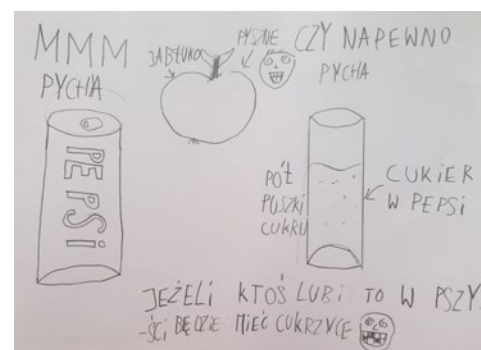 MMM
PYCHA
JABŁUKO
PYSZNE
CZY NAPEWNO
PYCHA
PEPSi
PÓŁ
PUSZKI
CUKRU
CUKiER
W PEPSi
JEŻELi KTOŚ LUBi TO W PSZY
-ŚCi BĘDZiE MiEĆ CUKRZYCE